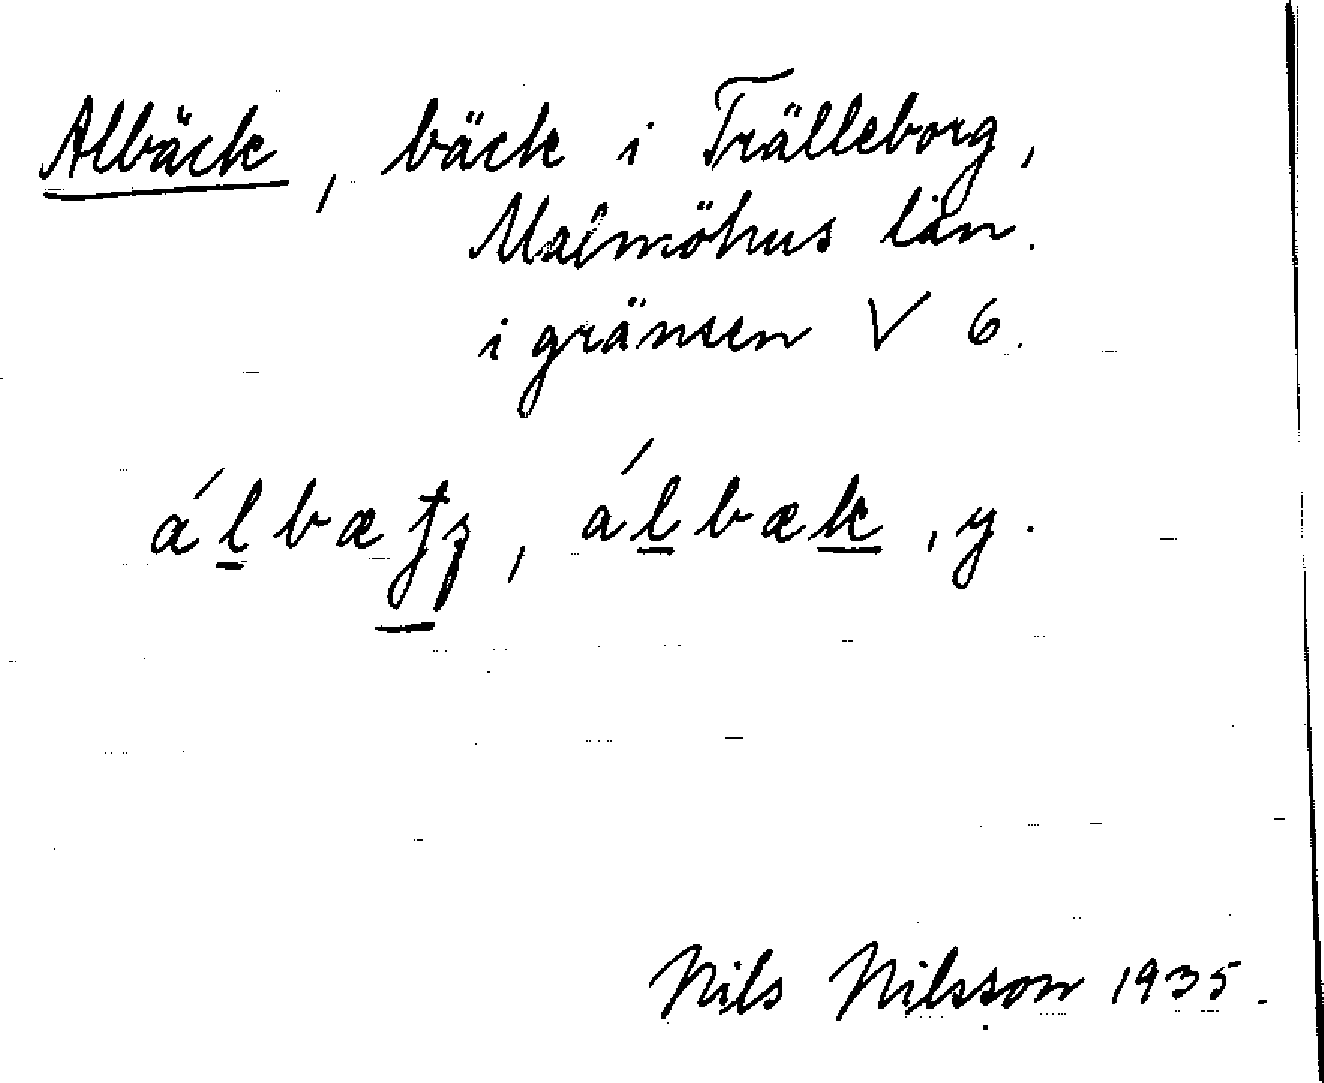 Albäck, bäck i Trälleborg,
Malmöhus län.
i gränsen V 6.
álbæ, álbæk, y.
Nils Nilsson 1935.